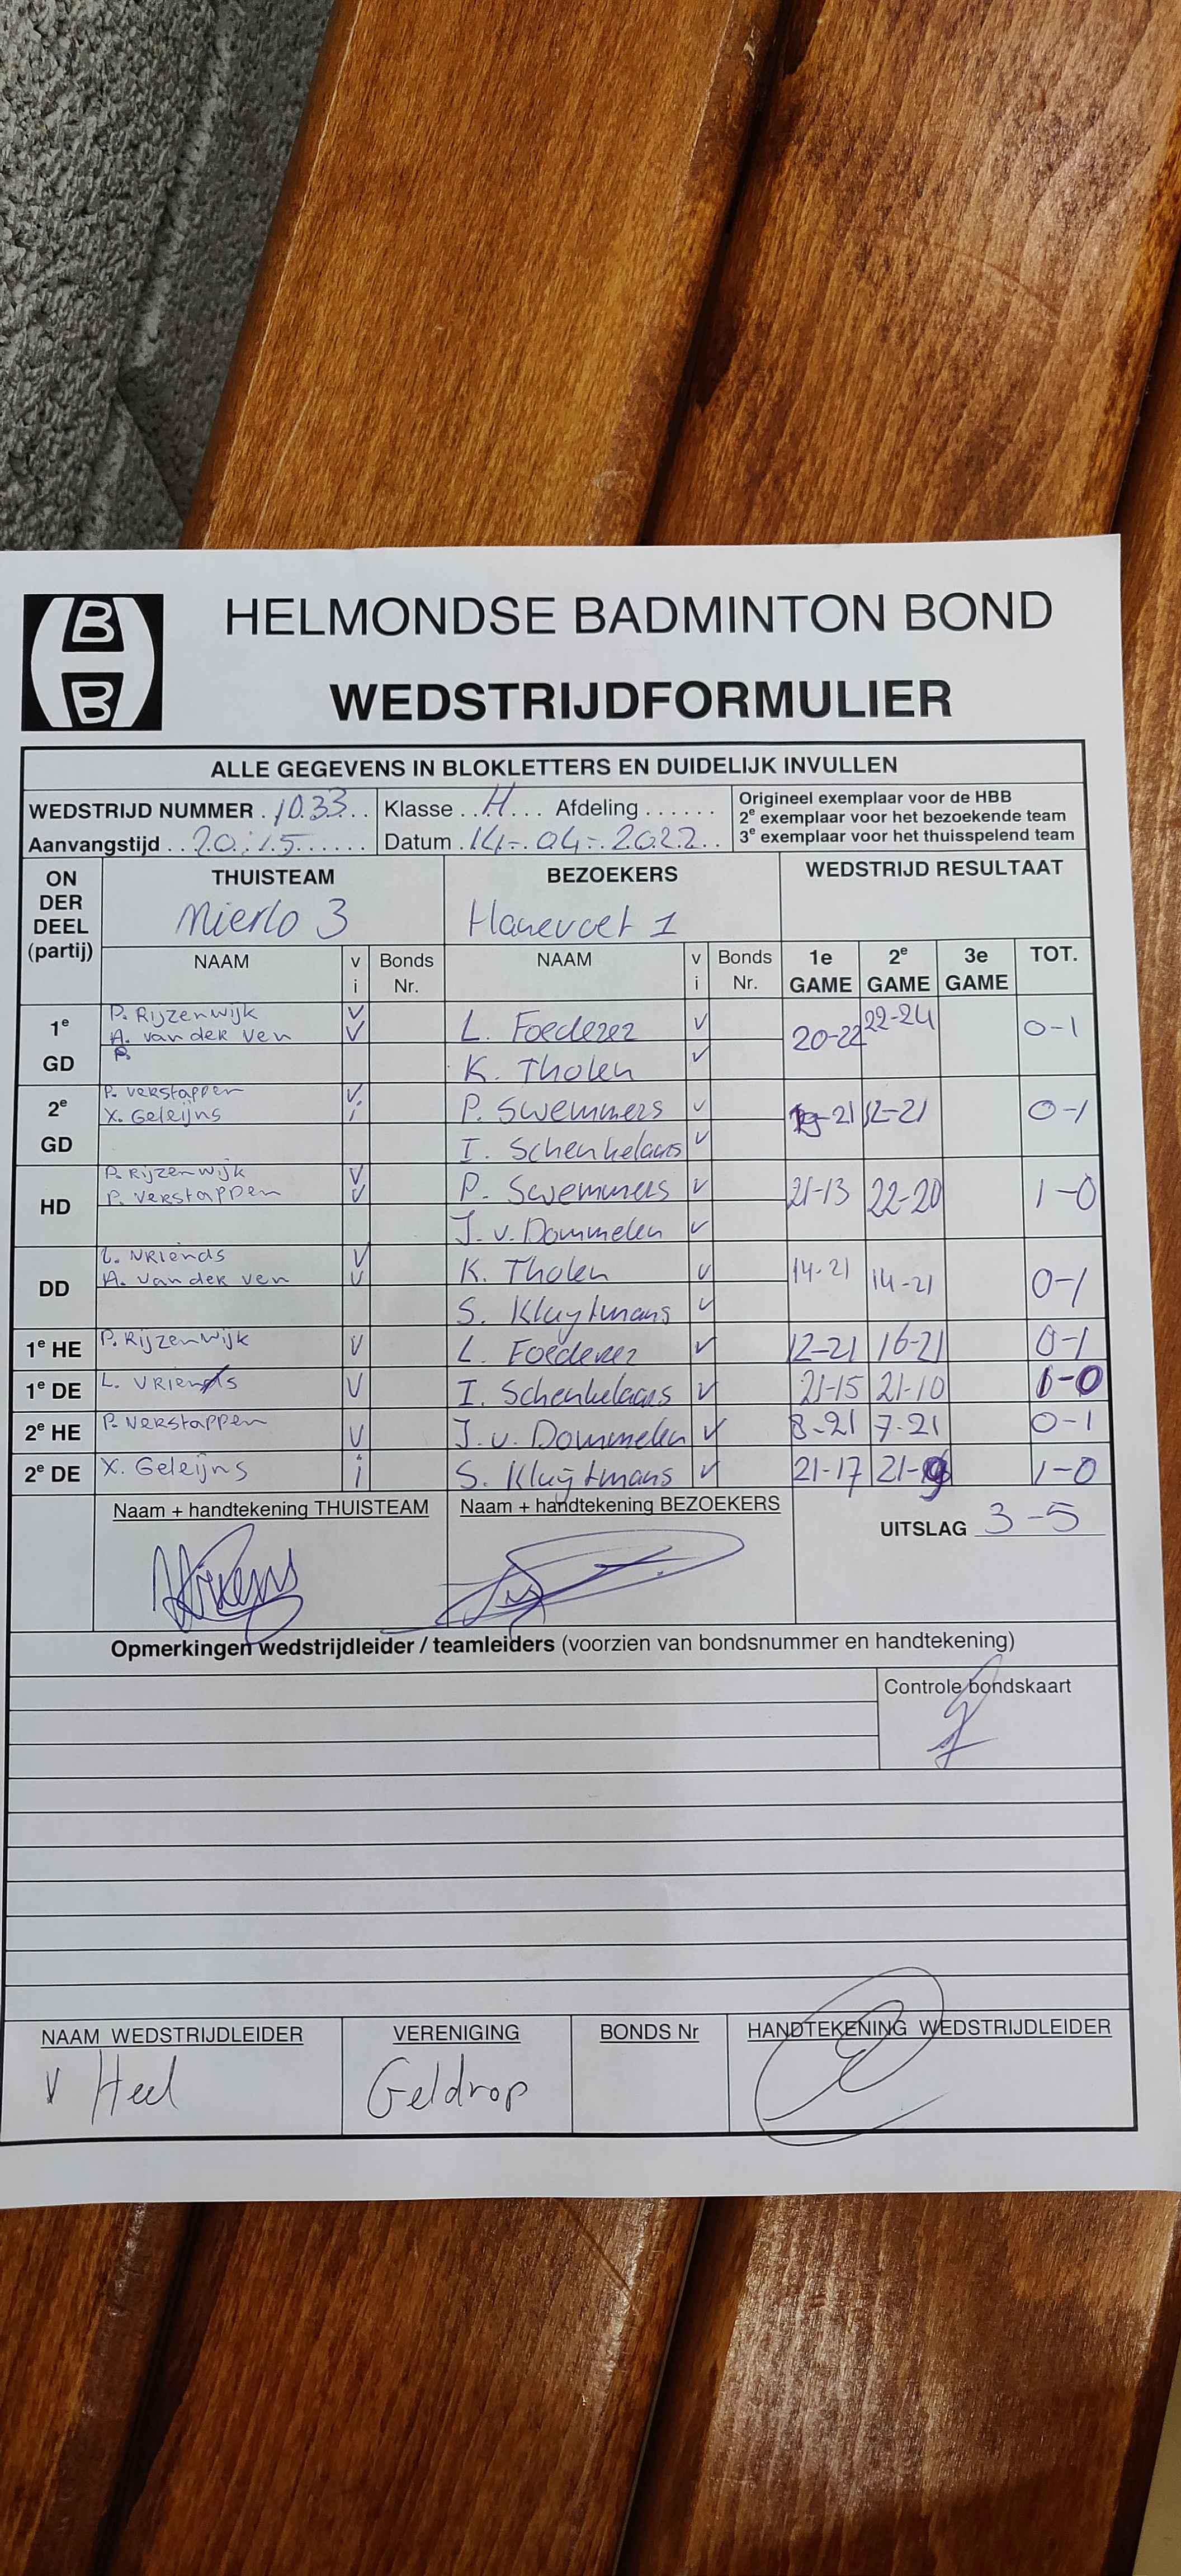 B
B
HELMONDSE BADMINTON BOND
WEDSTRIJDFORMULIER
ALLE GEGEVENS IN BLOKLETTERS EN DUIDELIJK INVULLEN
WEDSTRIJD NUMMER . 1033 . . Klasse . . H . . . Afdeling . . . . . .
Aanvangstijd . . 20:15 . . . . . . Datum . 14-04-2022 . .
Origineel exemplaar voor de HBB
2e exemplaar voor het bezoekende team
3e exemplaar voor het thuisspelend team
ON DER DEEL (partij) THUISTEAM BEZOEKERS WEDSTRIJD RESULTAAT
Mierlo 3 Hanevoet 1
NAAM v i Bonds Nr. NAAM v i Bonds Nr. 1e GAME 2e GAME 3e GAME TOT.
1e GD P. Rijzenwijk V L. Foederer V 20-22 22-24 0-1
A. van der Ven V K. Tholen V
P.
2e GD P. Verstappen V P. Swemmers V 19-21 12-21 0-1
X. Geleijns i I. Schenkelaars V
HD P. Rijzenwijk V P. Swemmers V 21-13 22-20 1-0
P. Verstappen V J. v. Dommelen V
DD L. Vriends V K. Tholen V 14-21 14-21 0-1
A. van der Ven V S. Kluytmans V
1e HE P. Rijzenwijk V L. Foederer V 12-21 16-21 0-1
1e DE L. Vriends V I. Schenkelaars V 21-15 21-10 1-0
2e HE P. Verstappen V J. v. Dommelen V 8-21 7-21 0-1
2e DE X. Geleijns i S. Kluijtmans V 21-17 21-9 1-0
Naam + handtekening THUISTEAM Naam + handtekening BEZOEKERS UITSLAG 3-5
Opmerkingen wedstrijdleider / teamleiders (voorzien van bondsnummer en handtekening)
Controle bondskaart
NAAM WEDSTRIJDLEIDER VERENIGING BONDS Nr HANDTEKENING WEDSTRIJDLEIDER
v Heel Geldrop